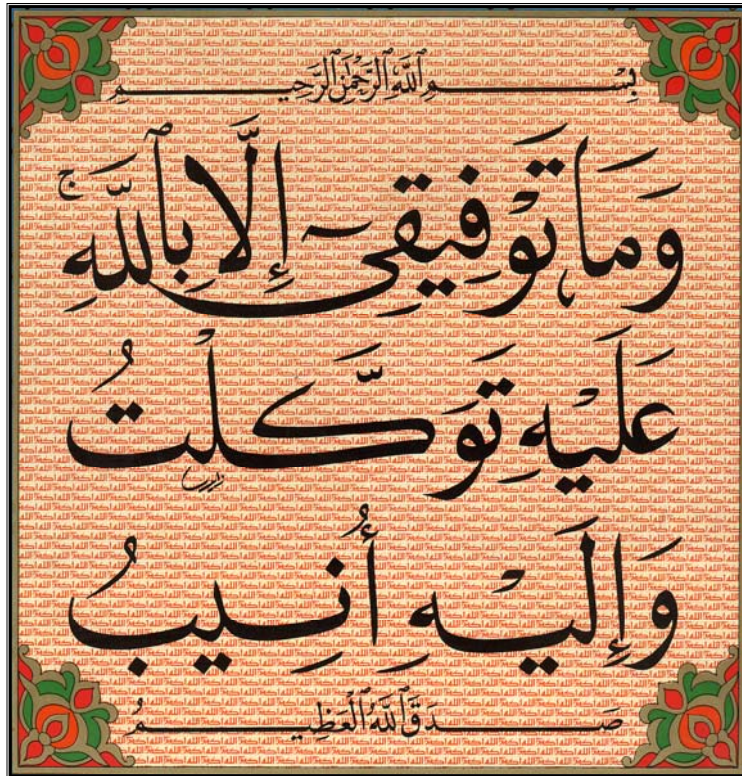 بِسْمِ ٱللَّهِ ٱلرَّحْمَٰنِ ٱلرَّحِيمِ
وَمَا تَوْفِيقِىٓ إِلَّا بِٱللَّهِ ۚ
عَلَيْهِ تَوَكَّلْتُ
وَإِلَيْهِ أُنِيبُ
صَدَقَ ٱللَّهُ ٱلْعَظِيمُ